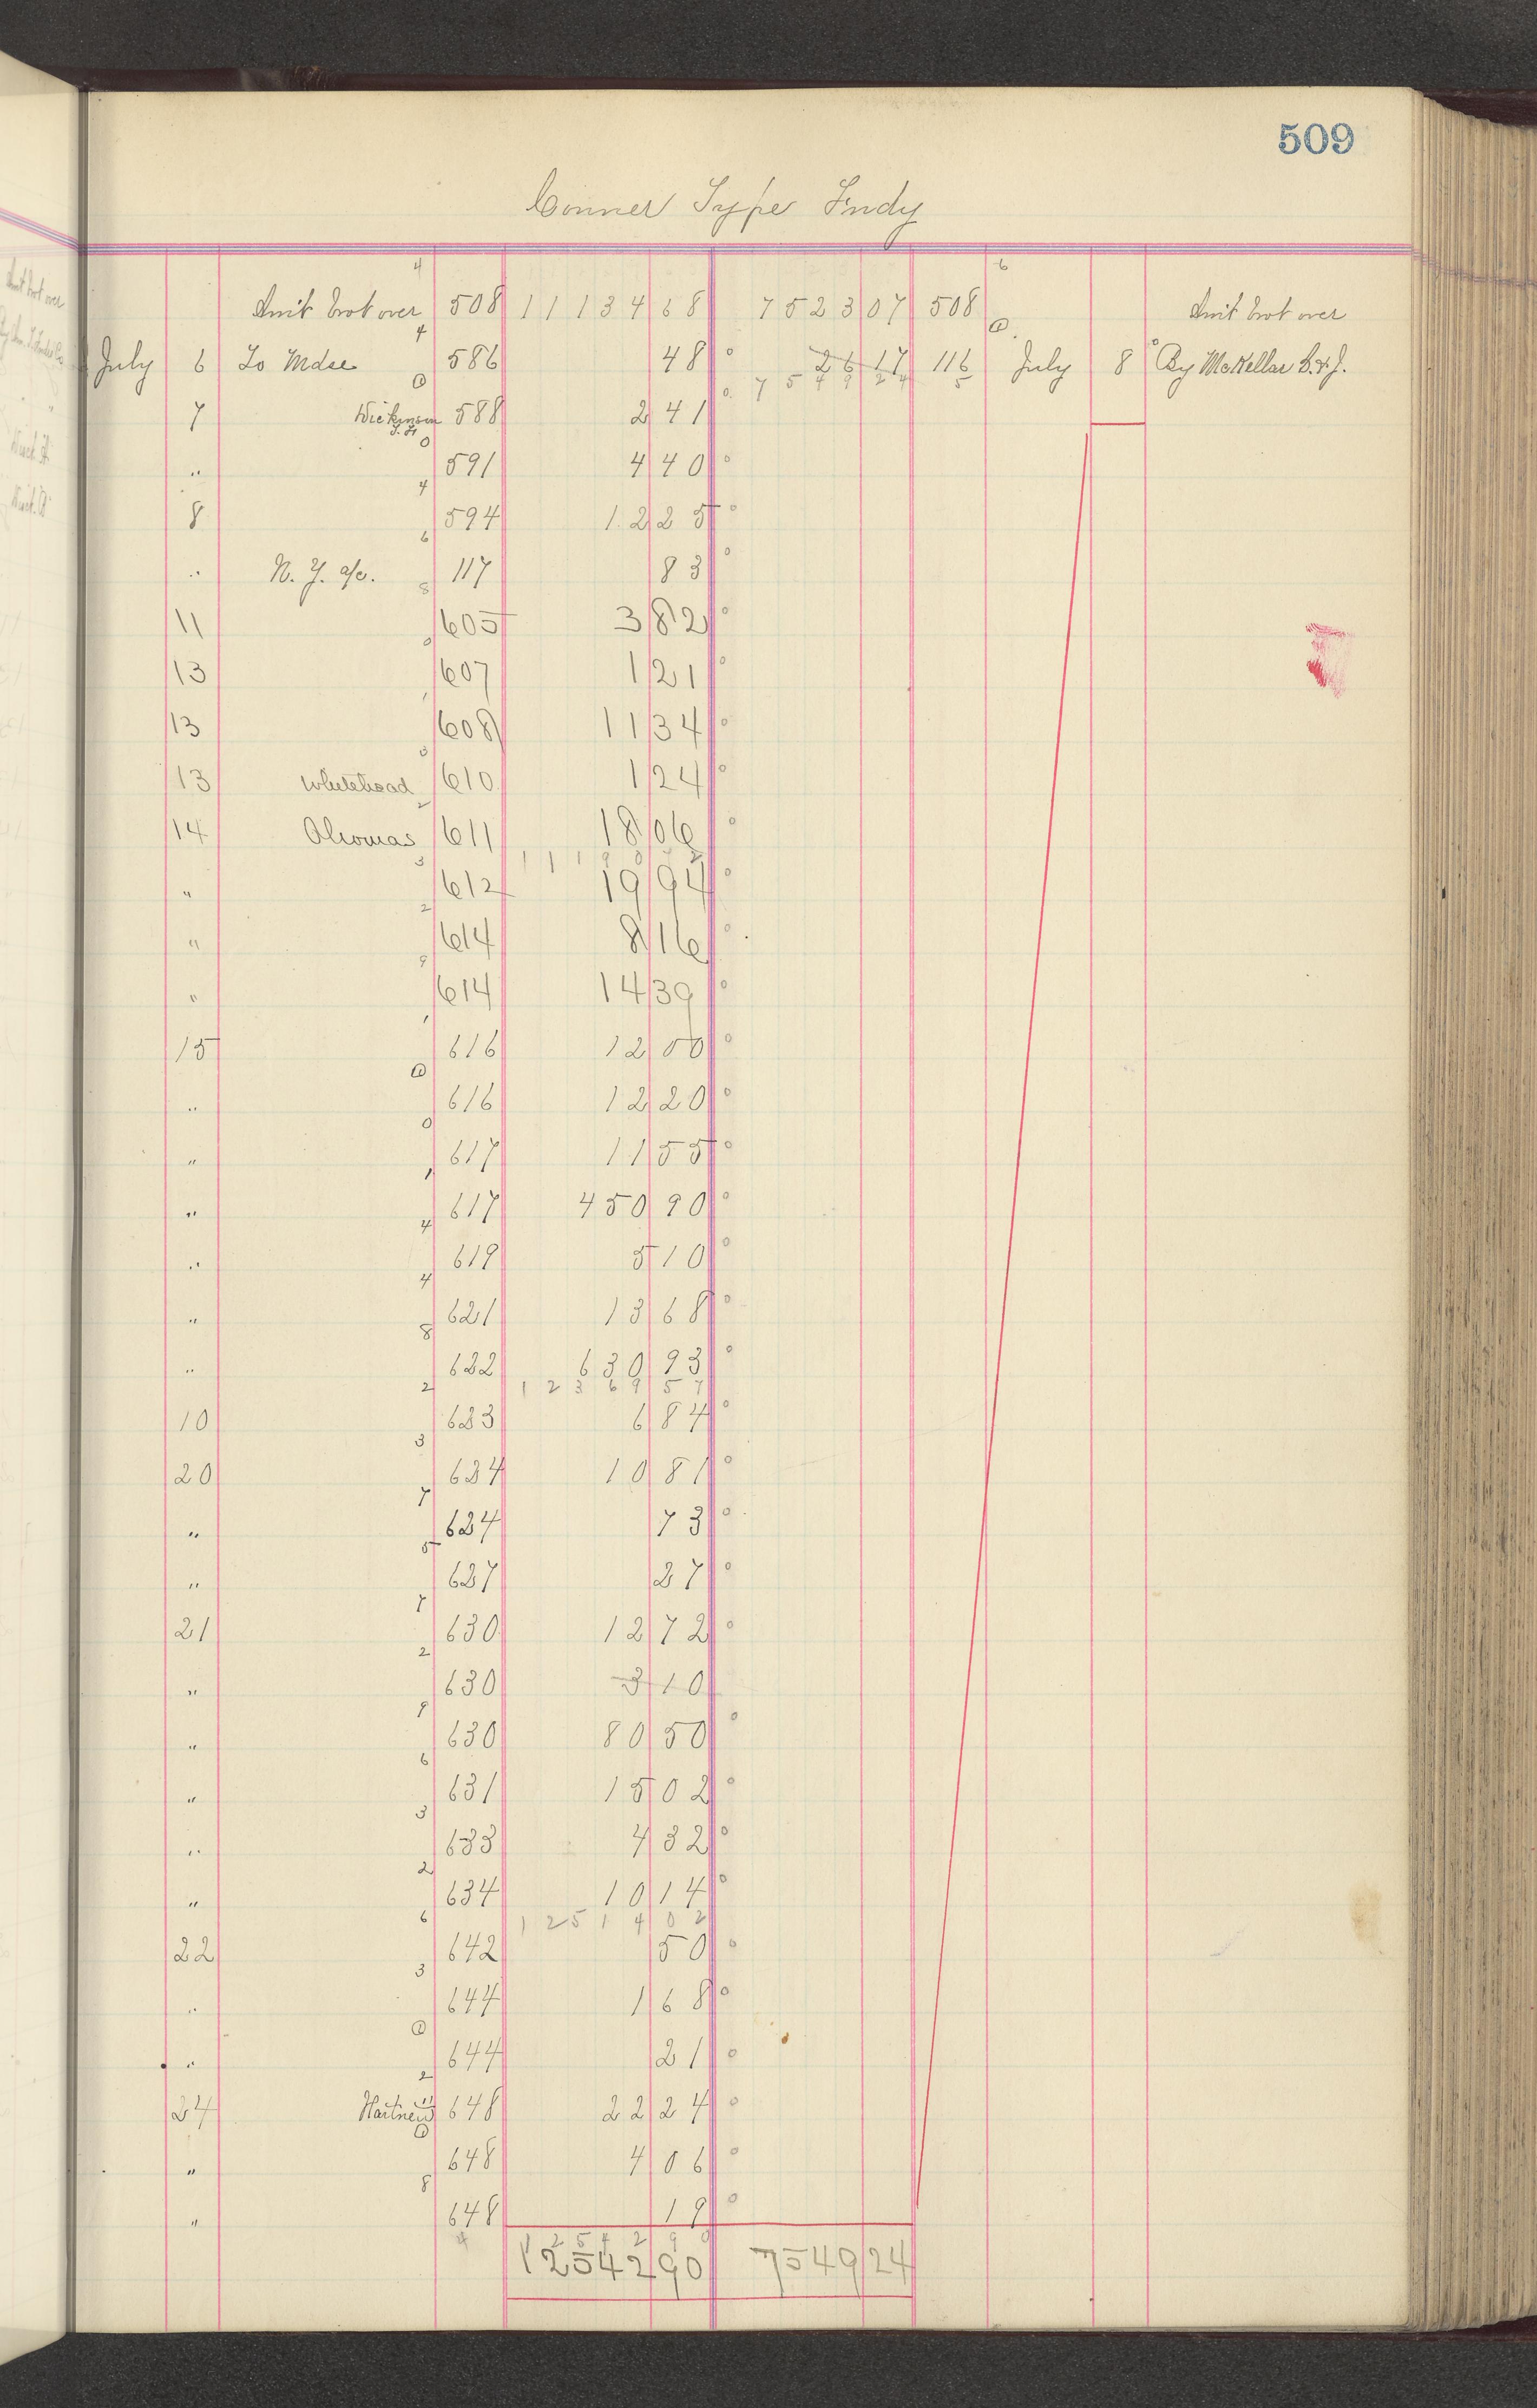 509
Conner Type Fndy
Amt brot over 508 11134 68 7523 07 508 Amt brot over
July 6 To Mdse 586 48 26 17 116 July 8 By McKellar S. & J.
7549 24
7 Dickinson 588 2 41
S. H.
" 591 4 40
8 594 12 25
" N. Y. a/c. 117 83
11 605 3 82
13 607 1 21
13 608 11 34
13 Whitehead 610 1 24
14 Thomas 611 18 06
11190 72
" 612 19 94
" 614 8 16
" 614 14 39
15 616 12 00
" 616 12 20
" 617 11 55
" 617 450 90
" 619 5 10
" 621 13 68
" 622 630 93
12369 57
10 623 6 84
20 624 10 81
" 624 73
" 627 27
21 630 12 72
" 630 3 10
" 630 80 50
" 631 15 02
" 633 4 32
" 634 10 14
12514 02
22 642 50
" 644 1 68
" 644 21
24 648 22 24
" 648 4 06
" 648 19
12542 90
12542 90 7549 24